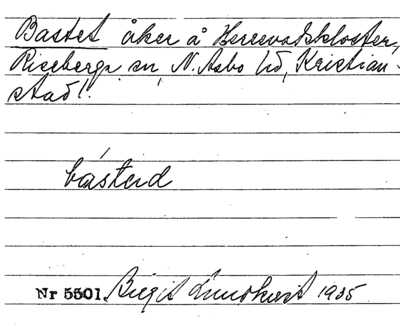 Bastet åker å Herrevadskloster,
Riseberga sn, N. Åsbo hd, Kristian-
stad l.
bástəd
Nr 5501. Birgit Lundkvist 1935